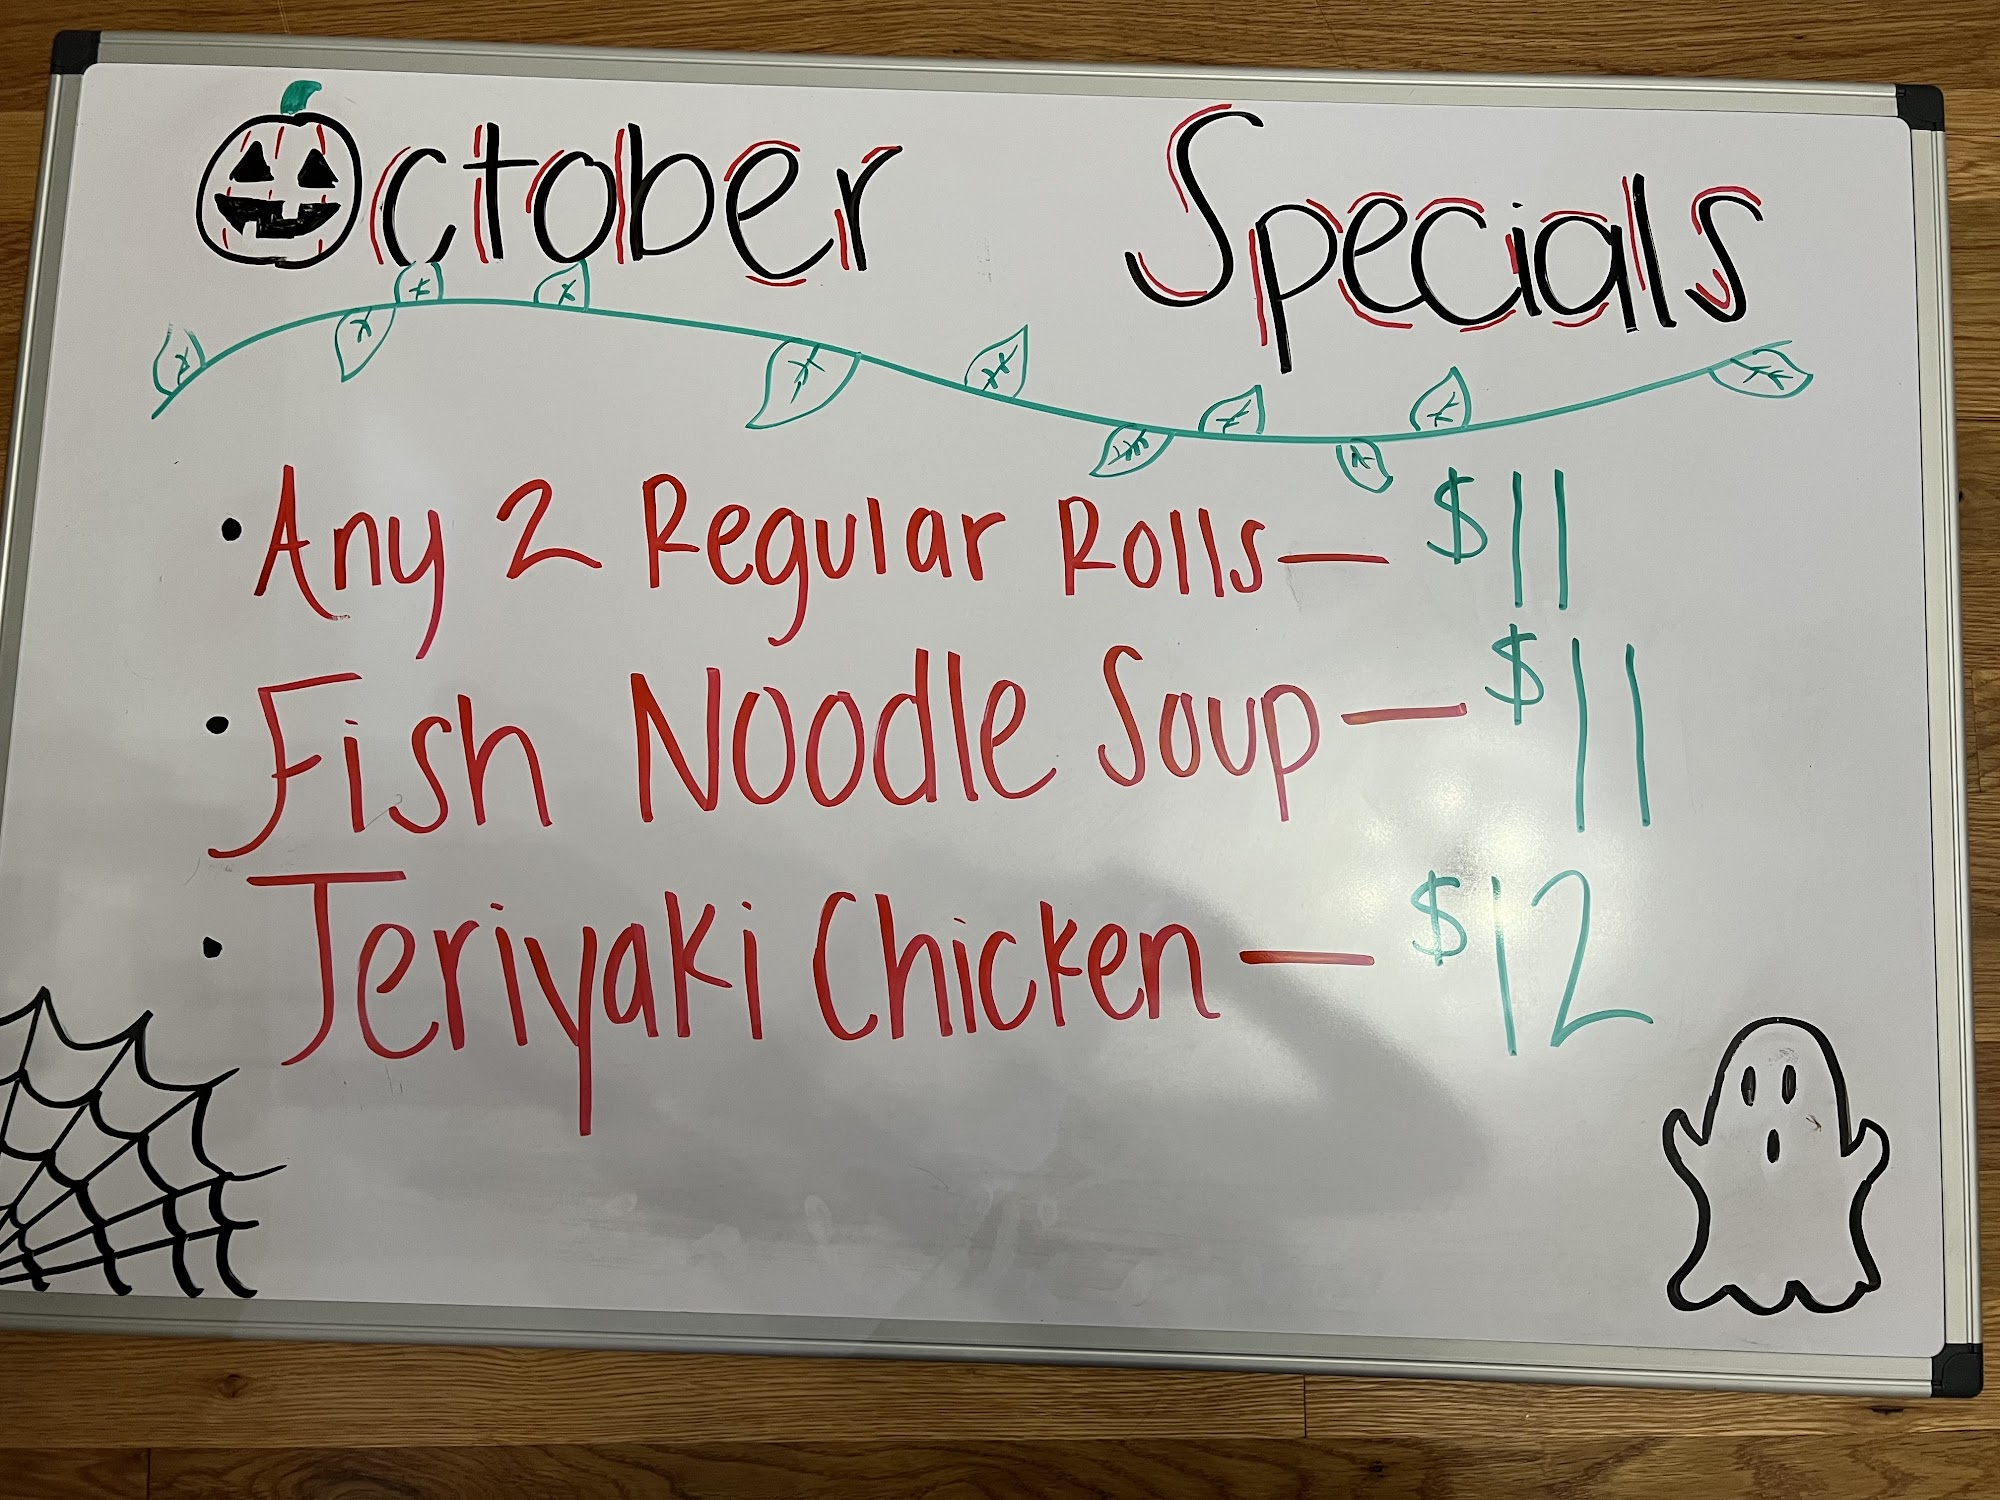 October Specials
• Any 2 Regular Rolls — $11
• Fish Noodle Soup — $11
• Teriyaki Chicken — $12